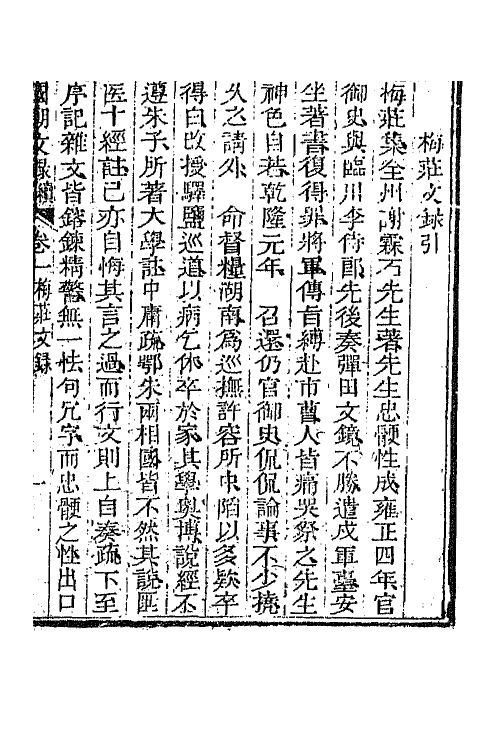 梅莊文録引
梅莊集全州謝霖石先生著先生忠骾性成雍正四年官
御史與臨川李侍郎先後奏彈田文鏡不勝遣戍軍臺安
坐著書復得罪將軍傳旨縛赴市曹人皆痛哭祭之先生
神色自若乾隆元年 召還仍官御史侃侃論事不少撓
久之請外 命督糧湖南爲巡撫許容所中陷以多欵卒
得白改授驛鹽巡道以病乞休卒於家其學奥博說經不
遵朱子所著大學註中庸疏鄂朱兩相國皆不然其說匯
医十經註己亦自悔其言之過而行文則上自奏疏下至
序記雜文皆鎔鍊精警無一怯句冗字而忠骾之性出口
國朝文録續 卷一梅莊文録 一